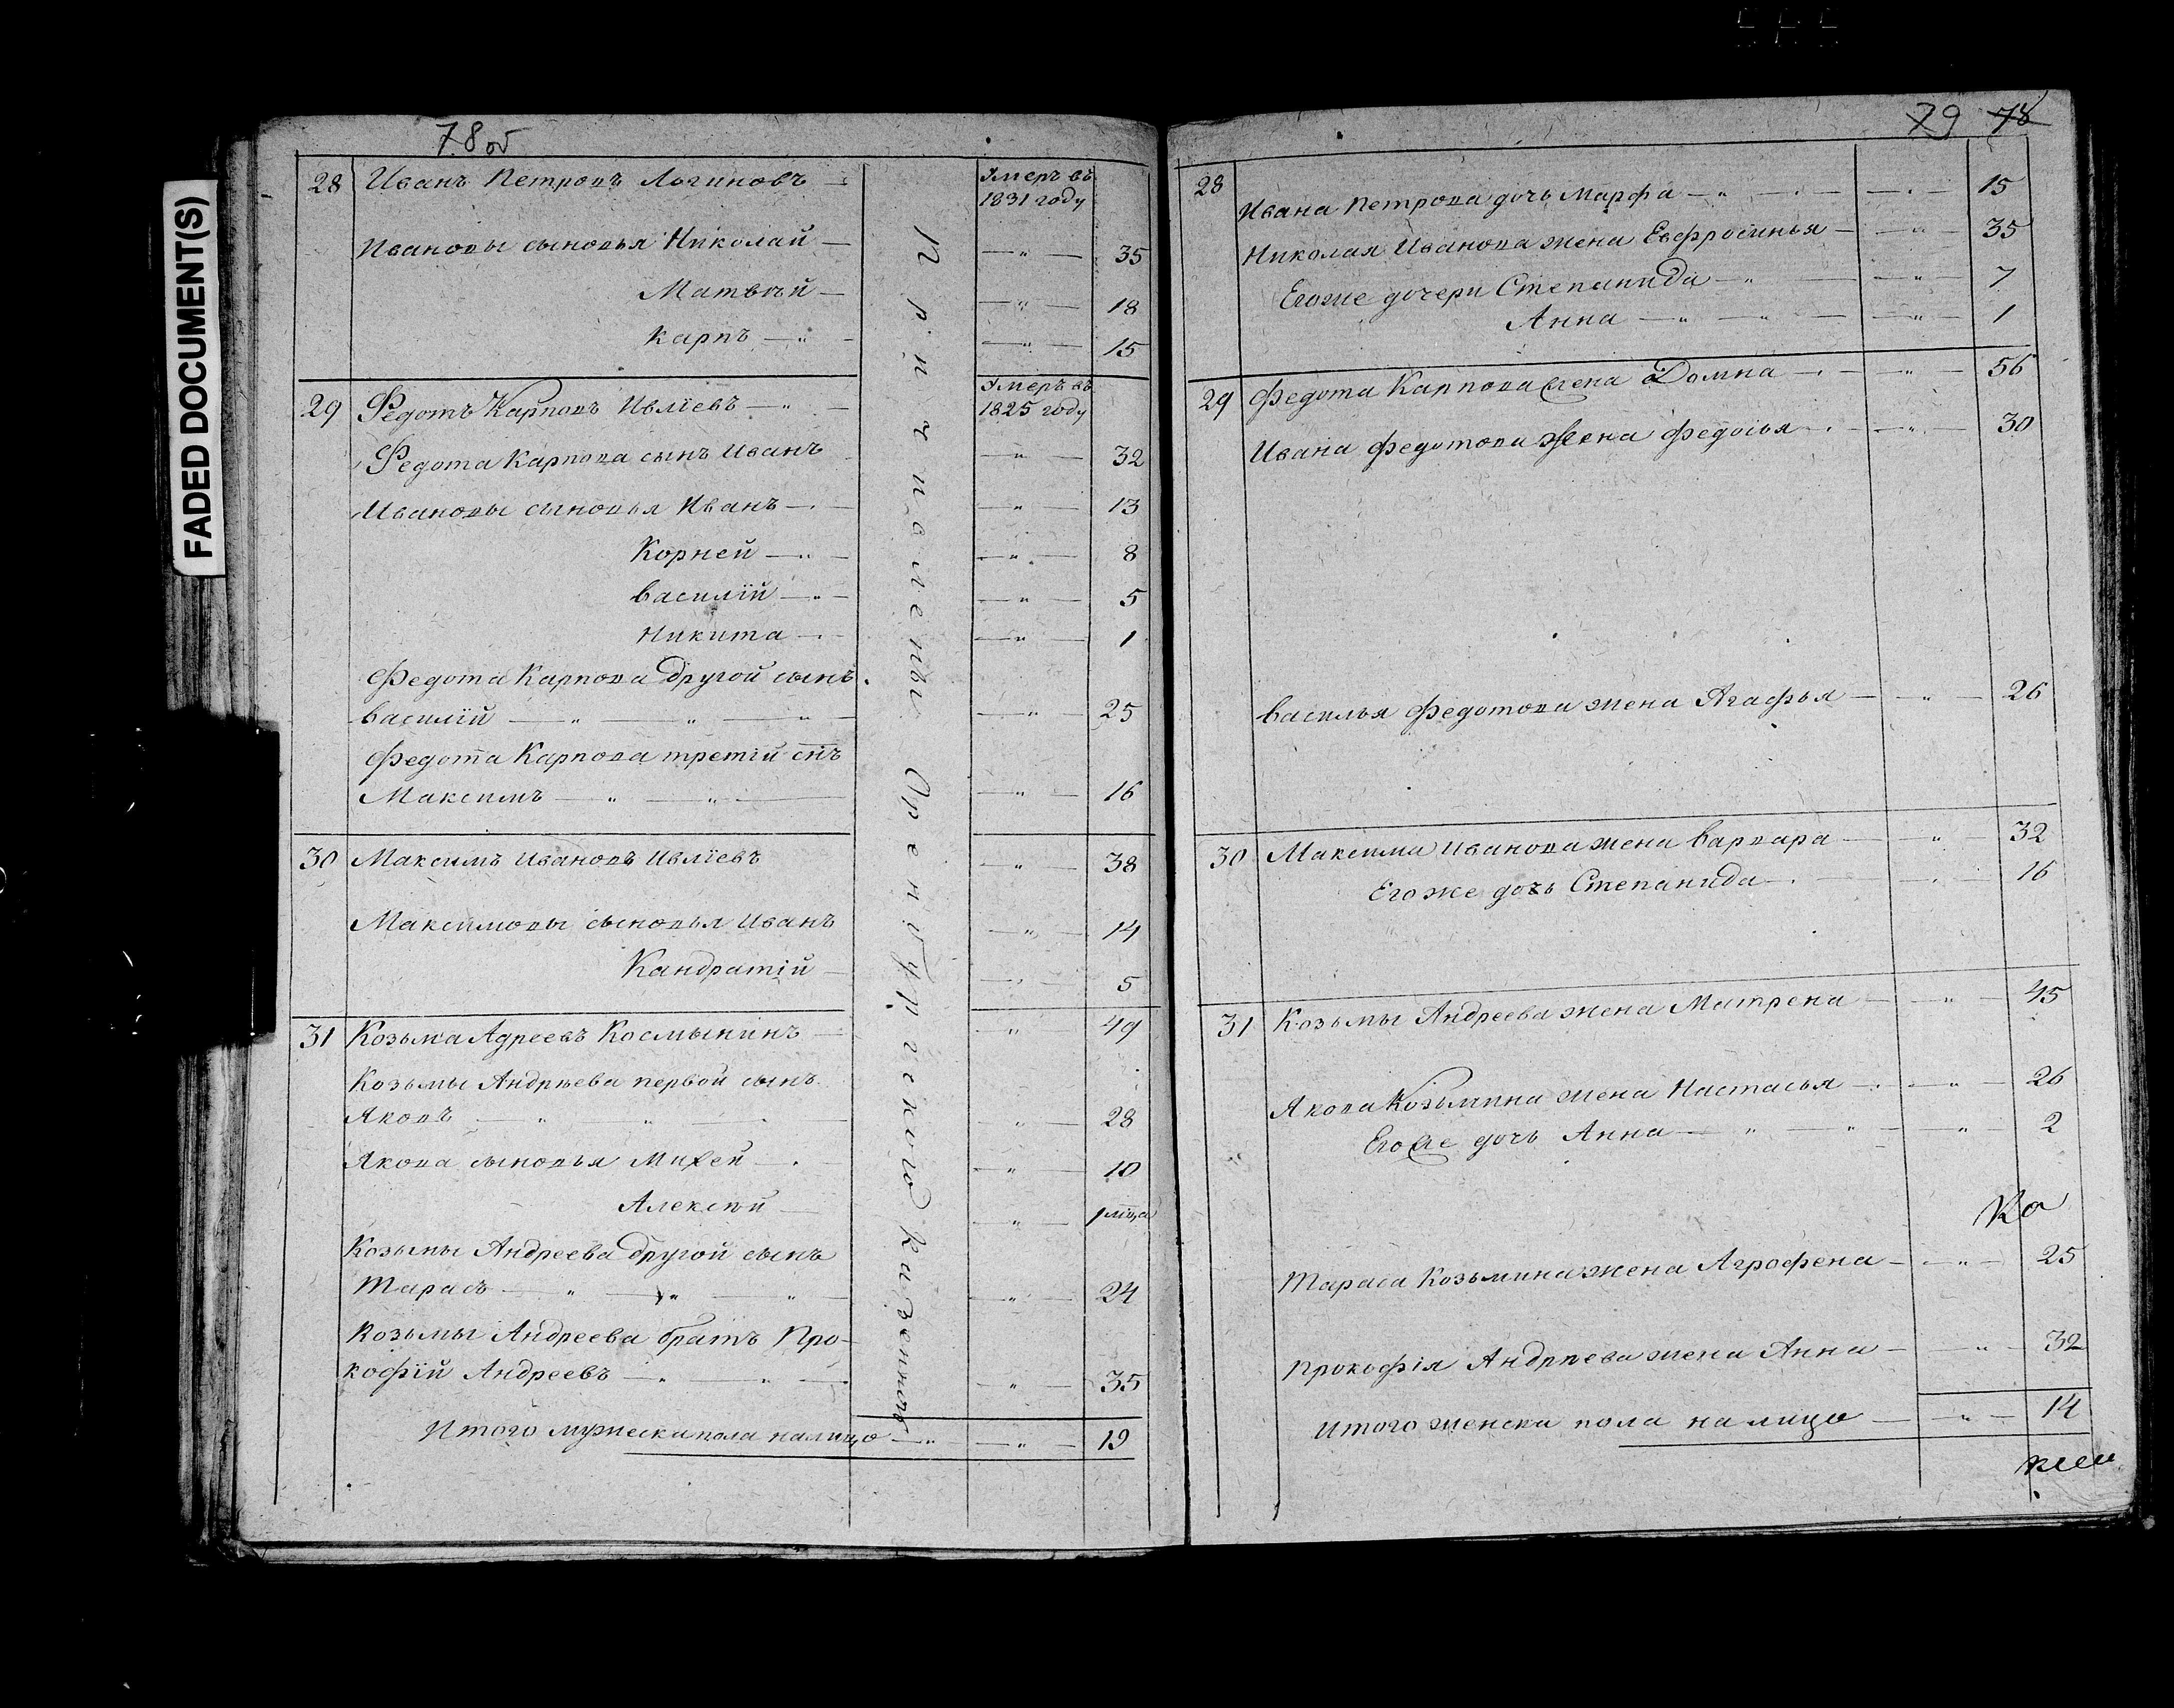 FADED DOCUMENT(S)
78 об
28 Иванъ Петровъ Логиновъ — Умеръ въ 1831 году
Ивановы сыновья Николай — — „ — 35
Матвѣй — — „ — 18
Карпъ — „ — — „ — 15
29 Федотъ Карповъ Ивлїевъ — „ — Умеръ въ 1825 году
Федота Карпова сынъ Иванъ — „ — 32
Ивановы сыновья Иванъ — — „ — 13
Корней — „ — — „ — 8
Василїй — „ — — „ — 5
Никита — — „ — 1
Федота Карпова другой сынъ
Василїй — „ — „ — „ — — „ — 25
Федота Карпова третїй снъ
Максимъ — „ — „ — — „ — 16
30 Максимъ Ивановъ Ивлїевъ — „ — 38
Максимовы сыновья Иванъ — „ — 14
Кандратїй — — „ — 5
31 Козьма Адреевъ Космынинъ — „ — 49
Козьмы Андрѣева первой сынъ
Яковъ — „ — „ — — „ — 28
Якова сыновья Михей — — „ — 10
Алексѣй — — „ — 1 мца
Козьмы Андреева другой сынъ
Тарасъ — „ — „ — „ — — „ — 24
Козьмы Андреева братъ Про-
кофїй Андреевъ — „ — „ — — „ — 35
Итого мужеска пола налицо — „ — — „ — 19
Причислены Оренбургского казенною
79 78
28 Ивана Петрова дочь Марфа — „ — — „ — 15
Николая Иванова жена Евфросинья — — „ — 35
Егоже дочери Степанида — „ — — „ — 7
Анна — „ — „ — — „ — 1
29 Федота Карпова жена Домна — — „ — 56
Ивана Федотова жена Федосья — — „ — 30
Василья Федотова жена Агафья — — „ — 26
30 Максима Иванова жена Варвара — — „ — 32
Егоже дочь Степанида — — „ — 16
31 Козьмы Андреева жена Матрена — — „ — 45
Якова Козьмина жена Настасья — — „ — 26
Егоже дочь Анна — „ — „ — — „ — 2
Ко
Тараса Козьмина жена Аграфена — — „ — 25
Прокофїя Андрѣева жена Анна — — „ — 32
Итого женска пола налицо — — „ — 14